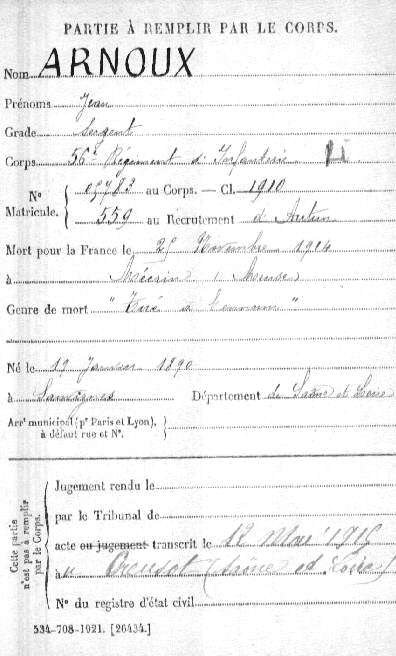 PARTIE À REMPLIR PAR LE CORPS.
Nom ARNOUX
Prénoms Jean
Grade Sergent
Corps 56e Régiment d'Infanterie
N° Matricule. { 05783 au Corps. — Cl. 1910
559 au Recrutement d'Autun
Mort pour la France le 25 Novembre 1914
à Mécrin, Meuse
Genre de mort "Tué à l'ennemi"
Né le 19 Janvier 1890
à Sanvignes Département de Saône et Loire
Arrt municipal (pr Paris et Lyon),
à défaut rue et N°.
Cette partie n'est pas à remplir par le Corps.
Jugement rendu le
par le Tribunal de
acte ou jugement transcrit le 12 Mai 1915
à Creusot (Saône et Loire)
N° du registre d'état civil
534-708-1921. [26434.]